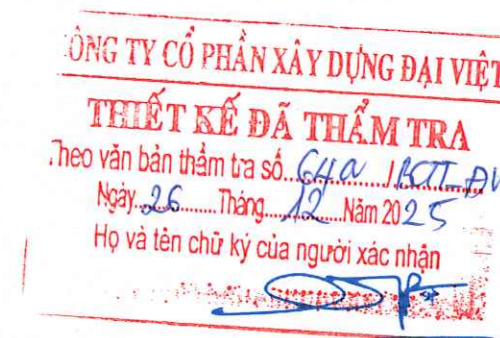 CÔNG TY CỔ PHẦN XÂY DỰNG ĐẠI VIỆT
THIẾT KẾ ĐÃ THẨM TRA
Theo văn bản thẩm tra số....64a....../BCTT-ĐV
Ngày...26.......Tháng....12....Năm 2025
Họ và tên chữ ký của người xác nhận